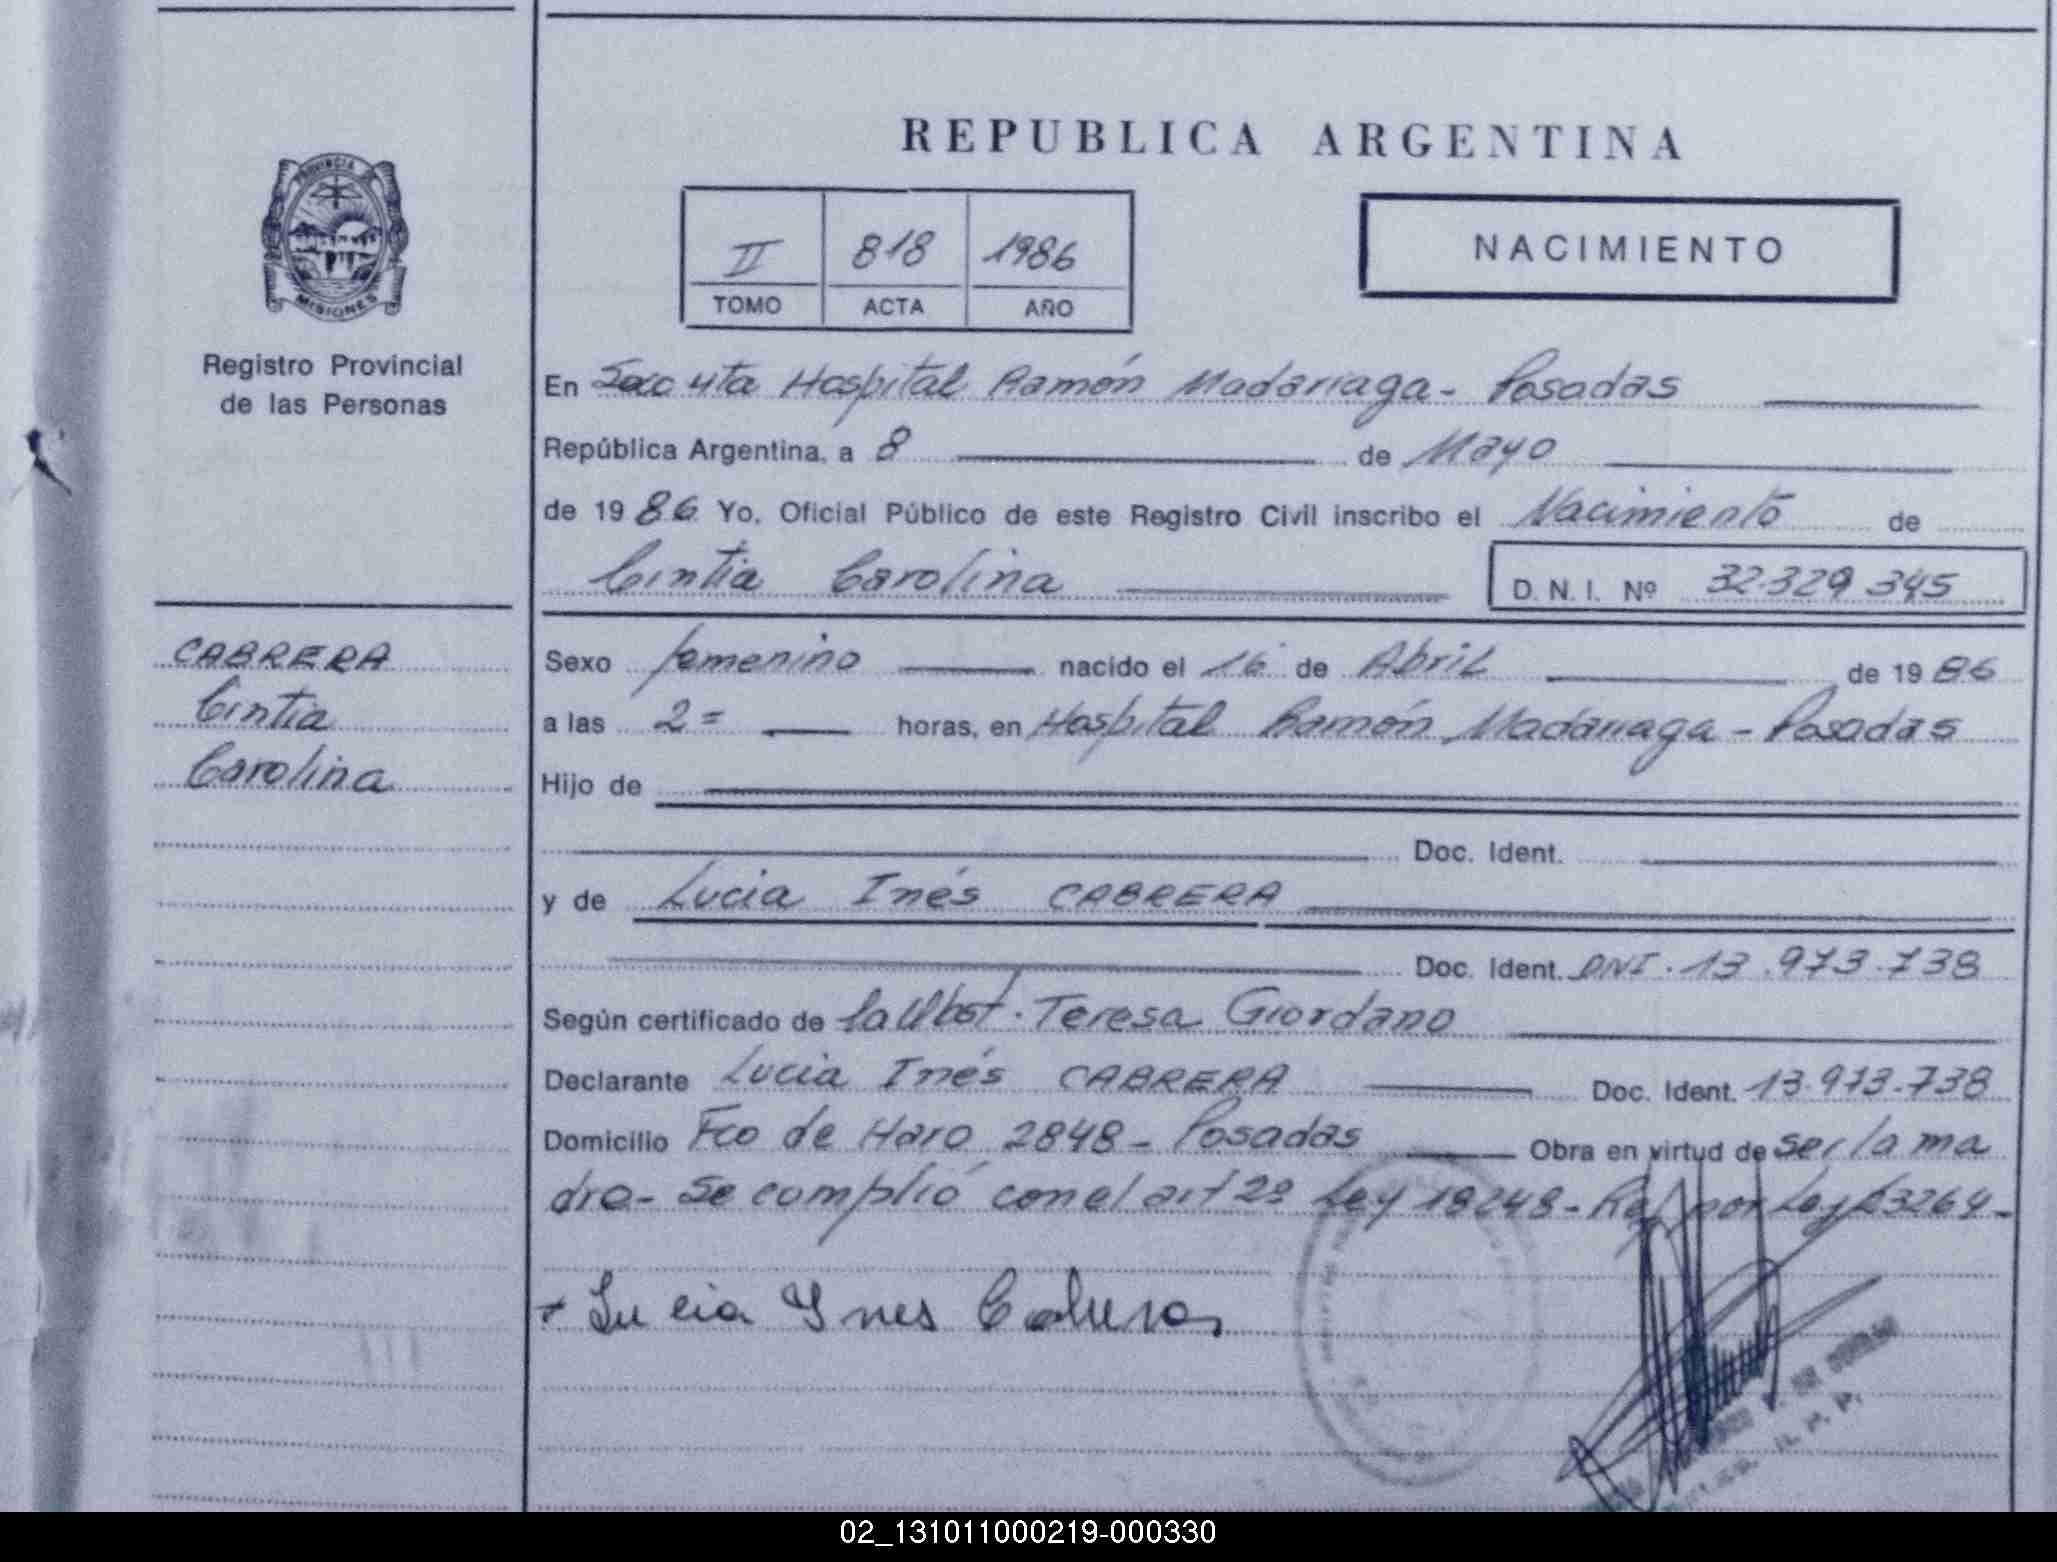 REPUBLICA ARGENTINA
PROVINCIA DE
MISIONES
Registro Provincial
de las Personas
II 818 1986
TOMO ACTA AÑO
NACIMIENTO
En Secc 4ta Hospital Ramón Madariaga - Posadas
República Argentina, a 8 de Mayo
de 1986 Yo, Oficial Público de este Registro Civil inscribo el Nacimiento de
Cintia Carolina D. N. I. Nº 32.329.345
CABRERA
Cintia
Carolina
Sexo femenino nacido el 16 de Abril de 1986
a las 2= horas, en Hospital Ramón Madariaga - Posadas
Hijo de
Doc. Ident.
y de Lucia Inés CABRERA
Doc. Ident. DNI. 13.973.738
Según certificado de la Obst. Teresa Giordano
Declarante Lucia Inés CABRERA Doc. Ident. 13.973.738
Domicilio Fco de Haro 2848 - Posadas Obra en virtud de ser la ma
dre - Se cumplió con el art 2º Ley 18248 - Ref por Ley 23264 -
+ Lucia Ines Cabrera
02_131011000219-000330